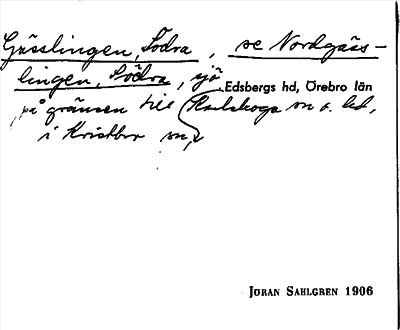 Gässlingen, Södra, se Nordgäss-
lingen, Södra, sjö Edsbergs hd, Örebro län
på gränsen till Karlskoga sn o. hd,
i Kristbr sn,
JÖRAN SAHLGREN 1906